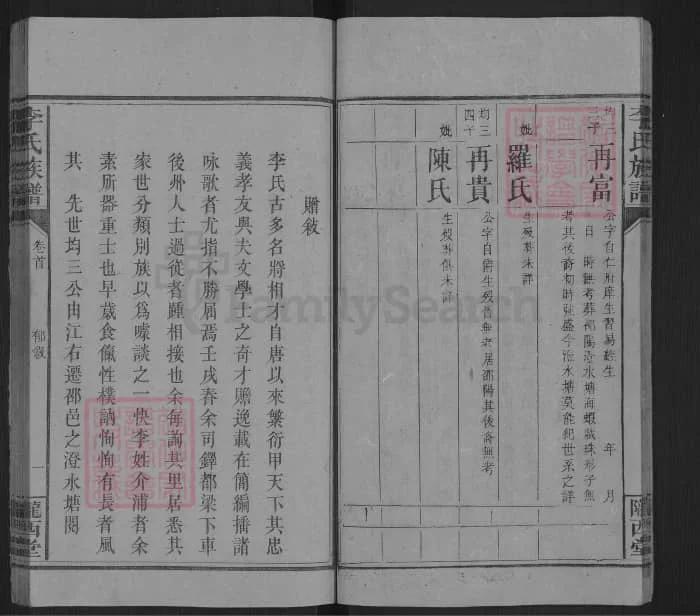 李氏族譜
隴西堂
均三子
再富
公字自仁府庠生習易
生 年 月
日 時無考葬邵陽澄水塘海蝦戲珠形子無
考其後裔初時熾盛今澄水塘莫能紀世系之詳
妣
羅氏
生歿葬未詳
均三四子
再貴
公字自衛生歿皆無考居邵陽其後裔無考
妣
陳氏
生歿葬俱未詳
贈敘
李氏古多名將相才自唐以來繁衍甲天下其忠
義孝友與夫文學士之奇才贍逸載在簡編播諸
咏歌者尤指不勝屈焉壬戌春余司鐸都梁下車
後州人士過從者踵相接也余每詢其里居悉其
家世分類別族以為噱談之一快李姓介浦者余
素所器重士也早歲食餼性樸訥恂恂有長者風
其 先世均三公由江右遷邵邑之澄水塘閱
李氏族譜
卷首
郁敘
一
隴西堂
FamilySearch